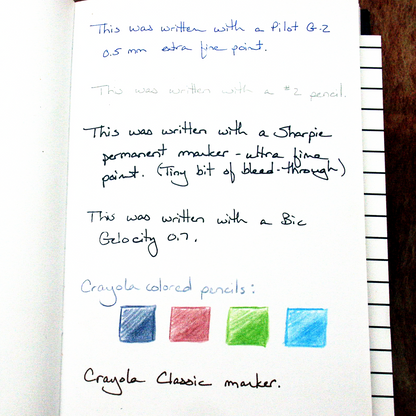 This was written with a Pilot G-2
0.5 mm extra fine point.
This was written with a #2 pencil.
This was written with a Sharpie
permanent marker - ultra fine
point. (Tiny bit of bleed-through)
This was written with a Bic
Gelocity 0.7.
Crayola colored pencils:
Crayola Classic marker.